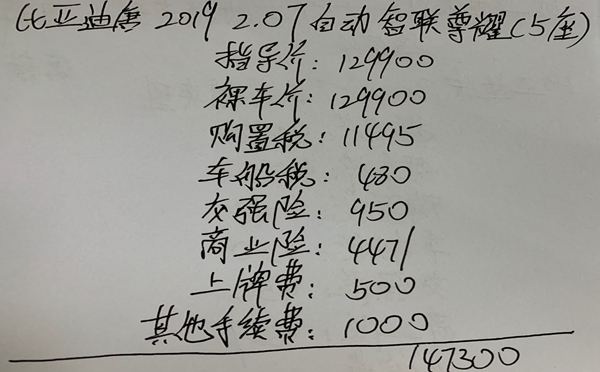 比亚迪唐 2019 2.0T 自动 智联尊耀(5座)
指导价: 129900
裸车价: 129900
购置税: 11495
车船税: 480
交强险: 950
商业险: 4471
上牌费: 500
其他手续费: 1000
147300